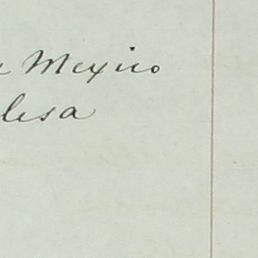 Mexico
lesa